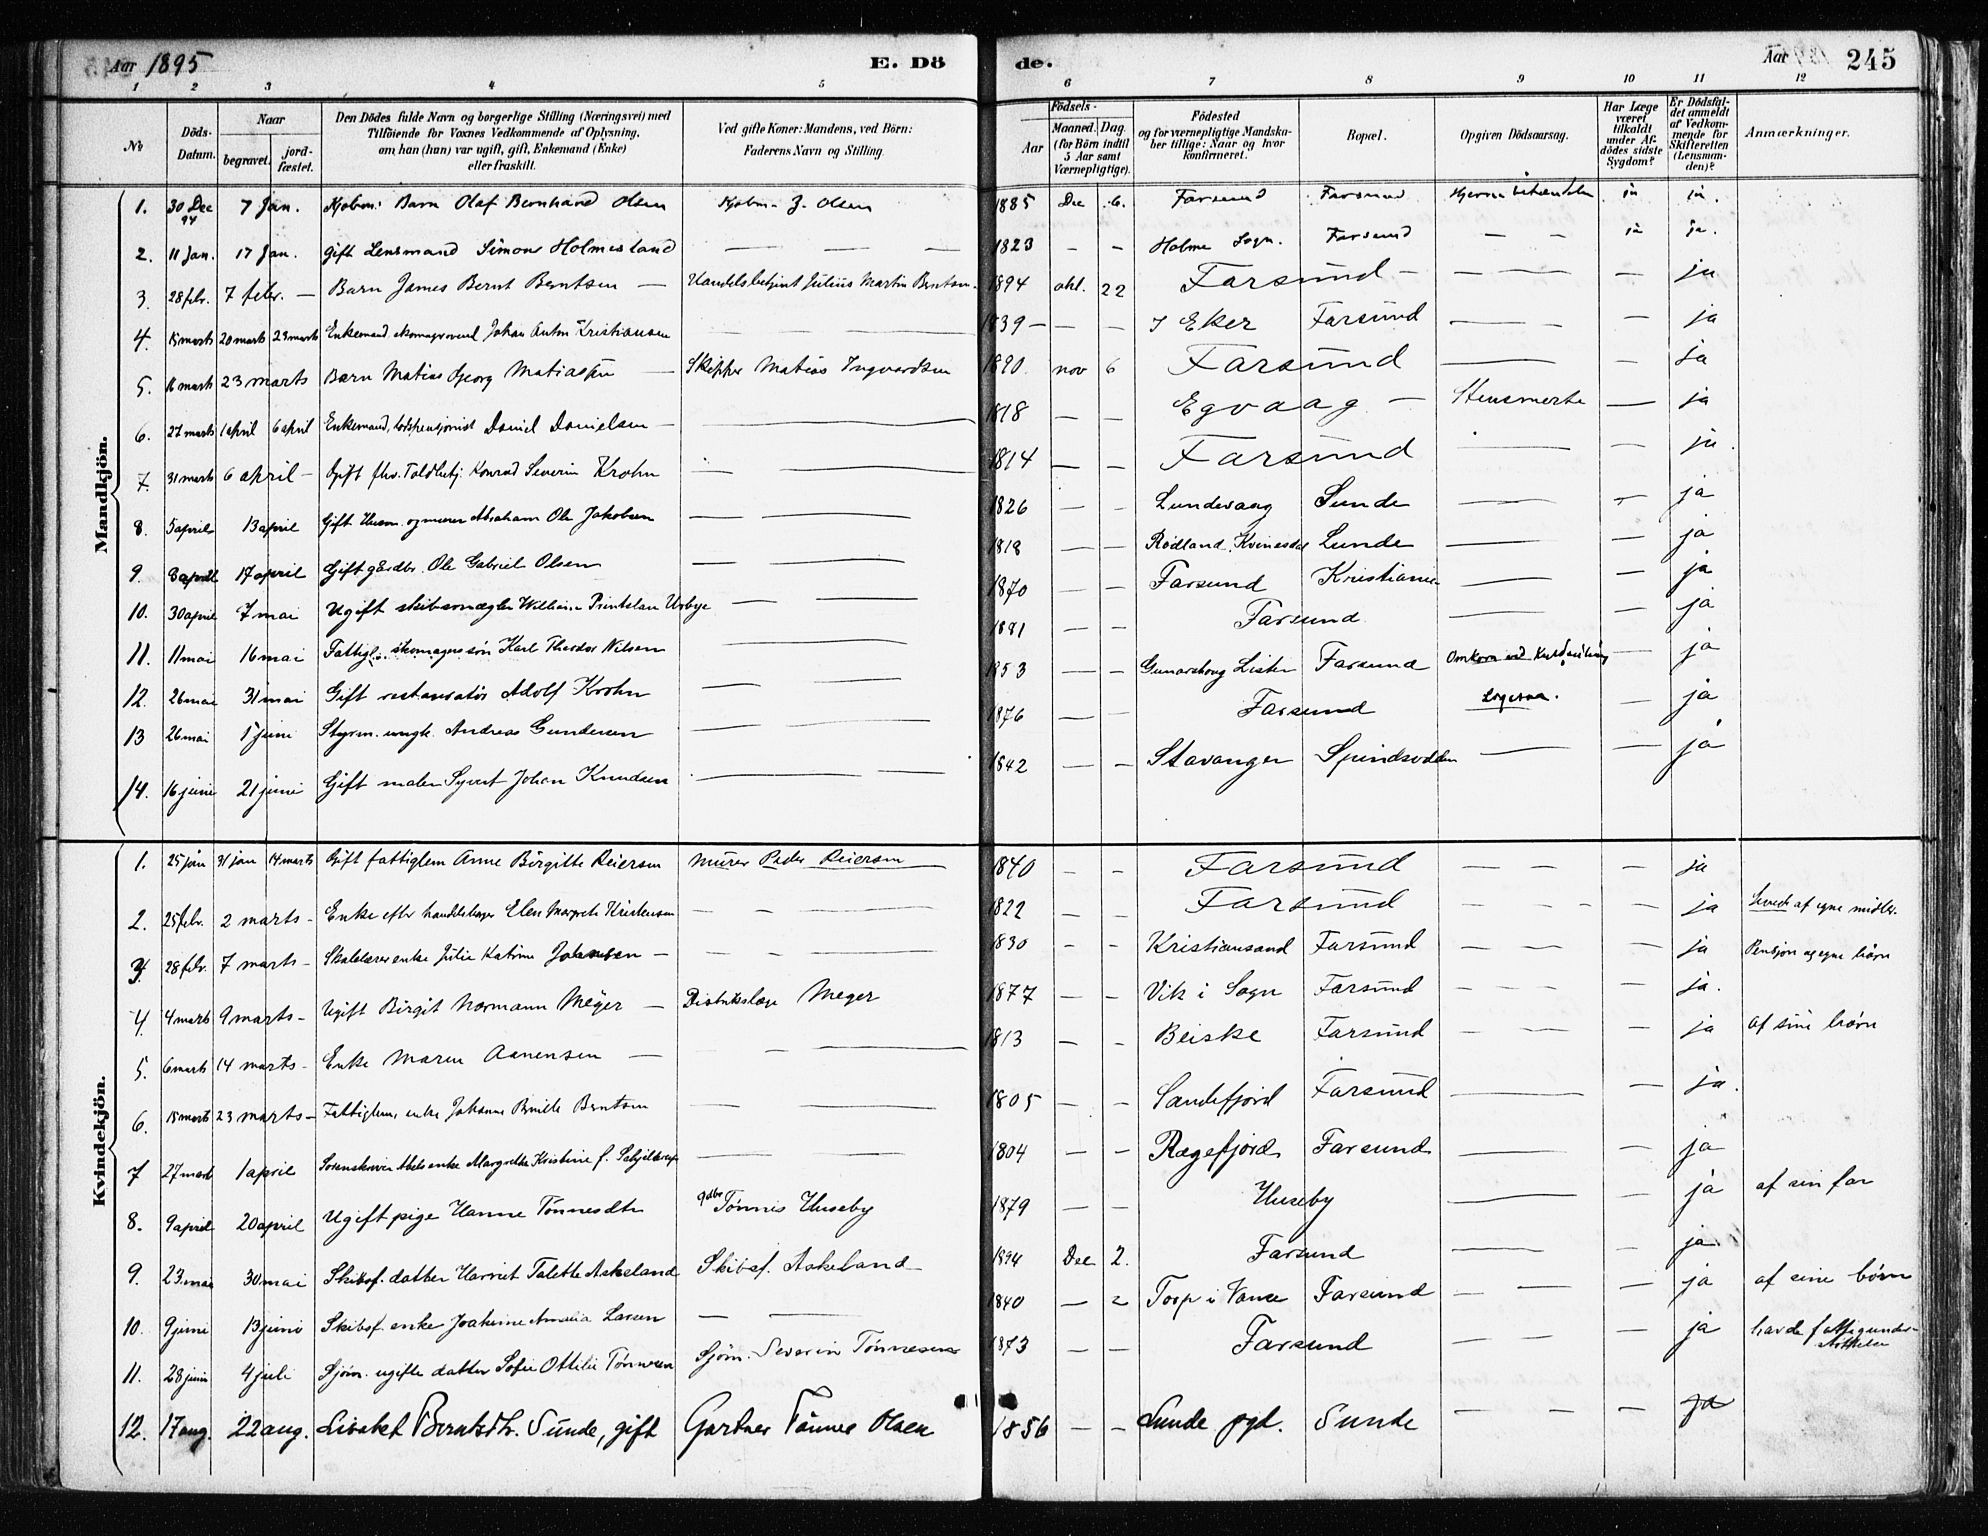 Aar 1895 E. Döde. Aar 245
1 2 3 4 5 6 7 8 9 10 11 12
No
Döds-Datum.
Naar
begravet.
jordfæstet.
Den Dödes fulde Navn og borgerlige Stilling (Næringsvei) med
Tilföiende for Voxnes Vedkommende af Oplysning,
om han (hun) var ugift, gift, Enkemand (Enke)
eller fraskilt.
Ved gifte Koner: Mandens, ved Börn:
Faderens Navn og Stilling.
Födsels-
Aar
Maaned. Dag.
(for Börn indtil
5 Aar samt
Værnepligtige).
Födested
og for værnepligtige Mandska-
ber tillige: Naar og hvor
konfirmeret.
Bopæl.
Opgiven Dödsaarsag.
Har Læge
været
tilkaldt
under Af-
dödes sidste
Sygdom?
Er Dödsfal-
det anmeldt
af Vedkom-
mende for
Skifteretten
(Lensman-
den)?
Anmærkninger.
Mandkjön.
1. 30 Dec 94 7 Jan. Barn Olaf Bernhard Olsen Olsen 1885 Dec 6. Farsund Farsund ja ja.
2. 11 Jan. 17 Jan. Gift Lensmand Simon Holmesland — — — 1823 — — Holme Sogn. Farsund — — ja ja.
3. 28 febr. 7 febr. — Barn James Bernt Berntsen — Handelsbetjent Julius Martin Berntsen. 1894 okt. 22 Farsund — — — — ja
4. 15 marts 20 marts 23 marts Enkemand skomagersvend Johan Anton Kristiansen — — — 1839 — — — Eker Farsund — — — ja
5. 16 marts 23 marts Barn Matias Georg Matiassen — Skipper Matias Ingvardsen 1890. nov 6 Farsund — — ja
6. 27 marts 1 april 6 april Enkemand, Daniel Danielsen — — 1818 — — Egvaag — Stensmerte — ja
7. 31 marts 6 april — Gift fhv. Toldbetj. Konrad Severin Krohn — — 1814 — — Farsund — — ja.
8. 5 april 13 april Gift Husm. og murer Abraham Ole Jakobsen — — 1826 — — Lundevaag Sunde — — ja
9. 8 april 17 april Gift gårdbr. Ole Gabriel Olsen — — 1818 — — Rödland, Kvinesdal Lunde — — ja
10. 30 april 7 mai Ugift skibsmægler William Printzlau Urbye — — 1870 — — Farsund Kristiania — — ja
11. 11 mai 16 mai Fattigl. skomagersön Karl Theodor Nilsen — — 1881 — — Farsund — — ja
12. 26 mai 31 mai Gift restauratör Adolf Krohn — — 1853 — — Lister Farsund Omkom ved — ja
13 26 mai 1 juni Styrm. ungk. Andreas Gundersen — — 1876 — — Farsund — ja
14. 16 juni 21 juni Gift maler Syvert Johan Knudsen — — 1842 — — Stavanger Spindsodden — — ja
Kvindekjön.
1. 25 jan 31 jan 14 marts Gift fattiglem Anne Birgitte Reiersen Murer Peder Reiersen 1840 — — Farsund — — — — ja
2. 25 febr. 2 marts — Enke efter Elen Margrete Kristensen — — — 1822 — Farsund — — — — ja Levede af egne midler.
3. 28 febr. 7 marts — Skolelærerenke Julie Katrine Johansen — — — — 1830 — — Kristiansand Farsund — — — ja Pensjon og egne börn
4. 4 marts 9 marts — Ugift Birgit Normann Meyer — Distriktslæge Meyer 1877 — — Vik i Sogn Farsund — — — — ja.
5. 6 marts 14 marts — Enke Maren Aanensen — — — 1813 — — Beiske Farsund — — — — ja af sine börn
6. 18 marts 23 marts — Fattiglem, enke Johanne Pernille Berntsen — — 1805 — — Sandefjord Farsund — — ja.
7 27 marts 1 april Sorenskriver Abels enke Margrethe Kristine f. Schjelderup — — 1804 — — Rægefjord Farsund — — ja
8. 9 april 20 april Ugift pige Hanne Tönnesdtr gdbr Tönnis Huseby 1879 — — Huseby — — ja af sin far
9. 23 mai 30 mai Skibsf. datter Harriet Talette Askeland Skibsf. Askeland 1894 Dec 2. Farsund — — ja
10. 9 juni 13 juni Skibsf. enke Joakime Amalia Larsen — — 1840 — 2 Torp i Vanse Farsund — — — ja af sine börn
11. 28 juni 4 juli Sjöm. ugifte datter Sofie Ottilie Tönnesen Sjöm. Severin Tönnesen 1873 — — Farsund — — — ja havde fattigunder-
stöttelse
12. 17 aug. 22 aug. Lisabet Berntsdtr. Sunde, gift Gartner Tönnes Olsen 1856 — — Lunde pgd. Sunde — — — ja